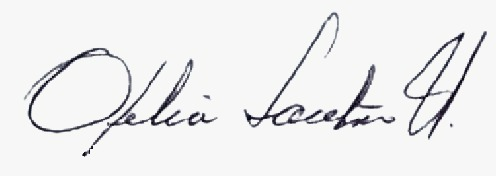 Ofelia Santos H.